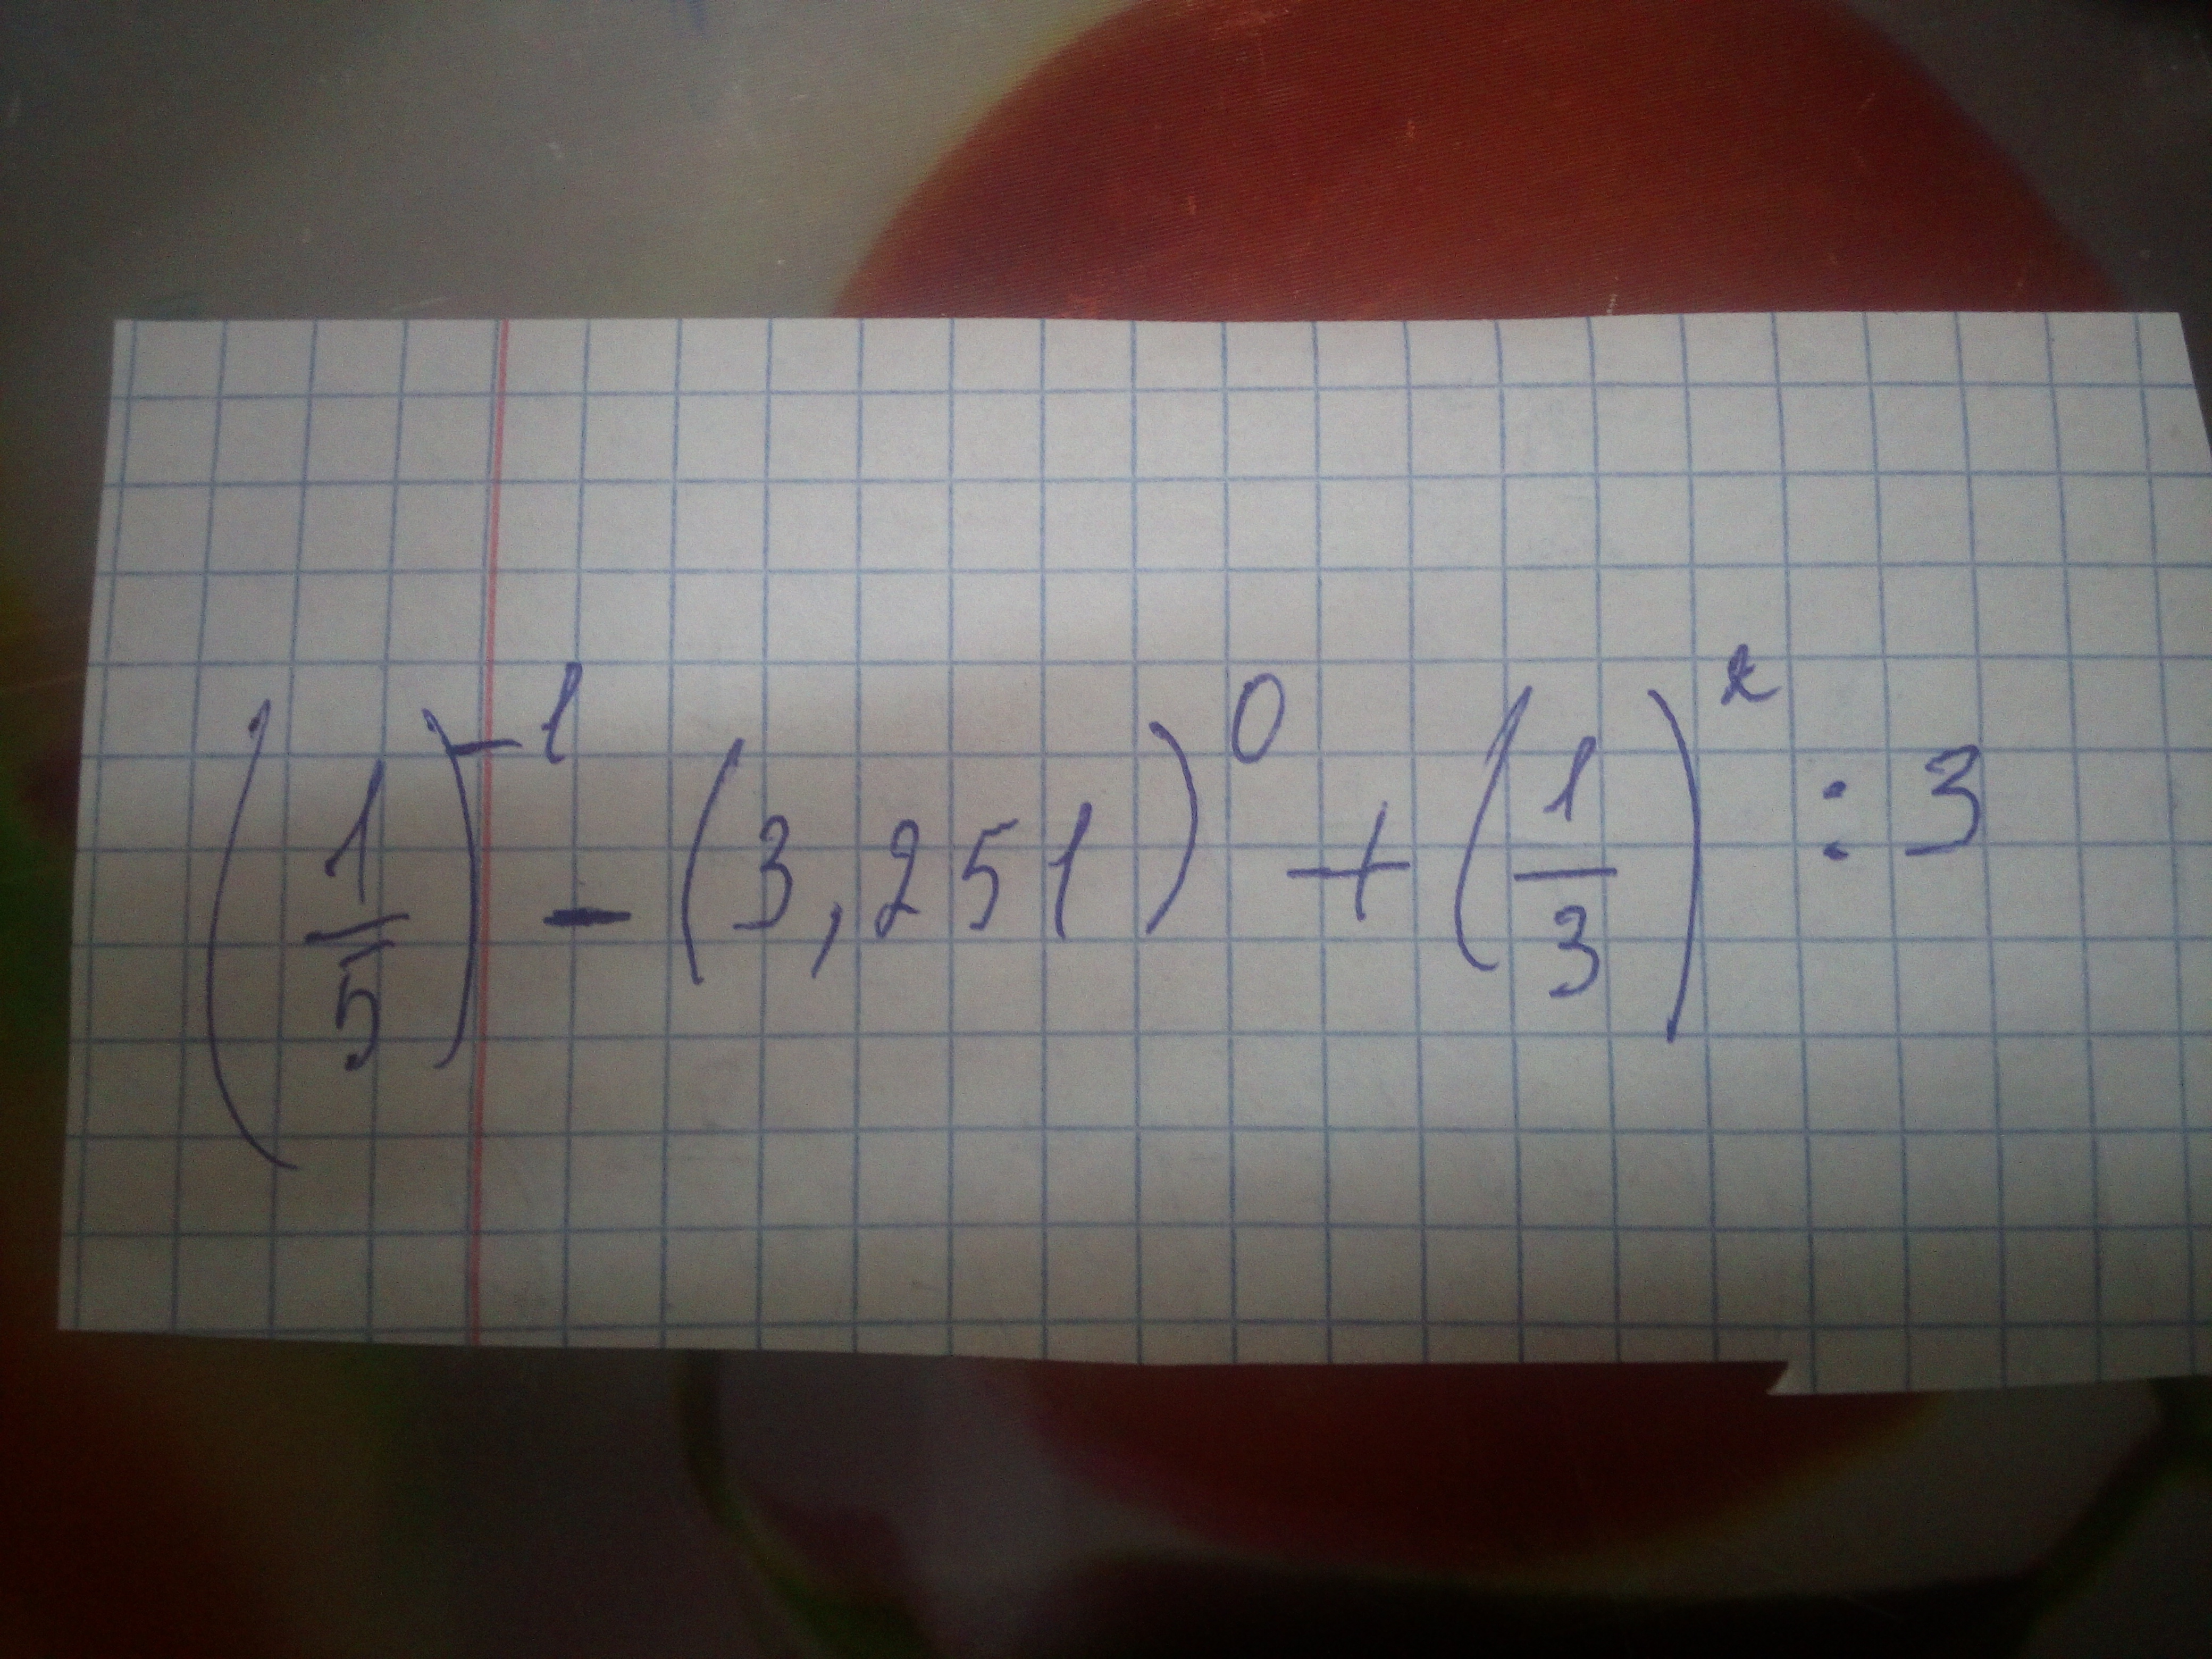 (1/5)^-1 - (3,251)^0 + (1/3)^2 : 3